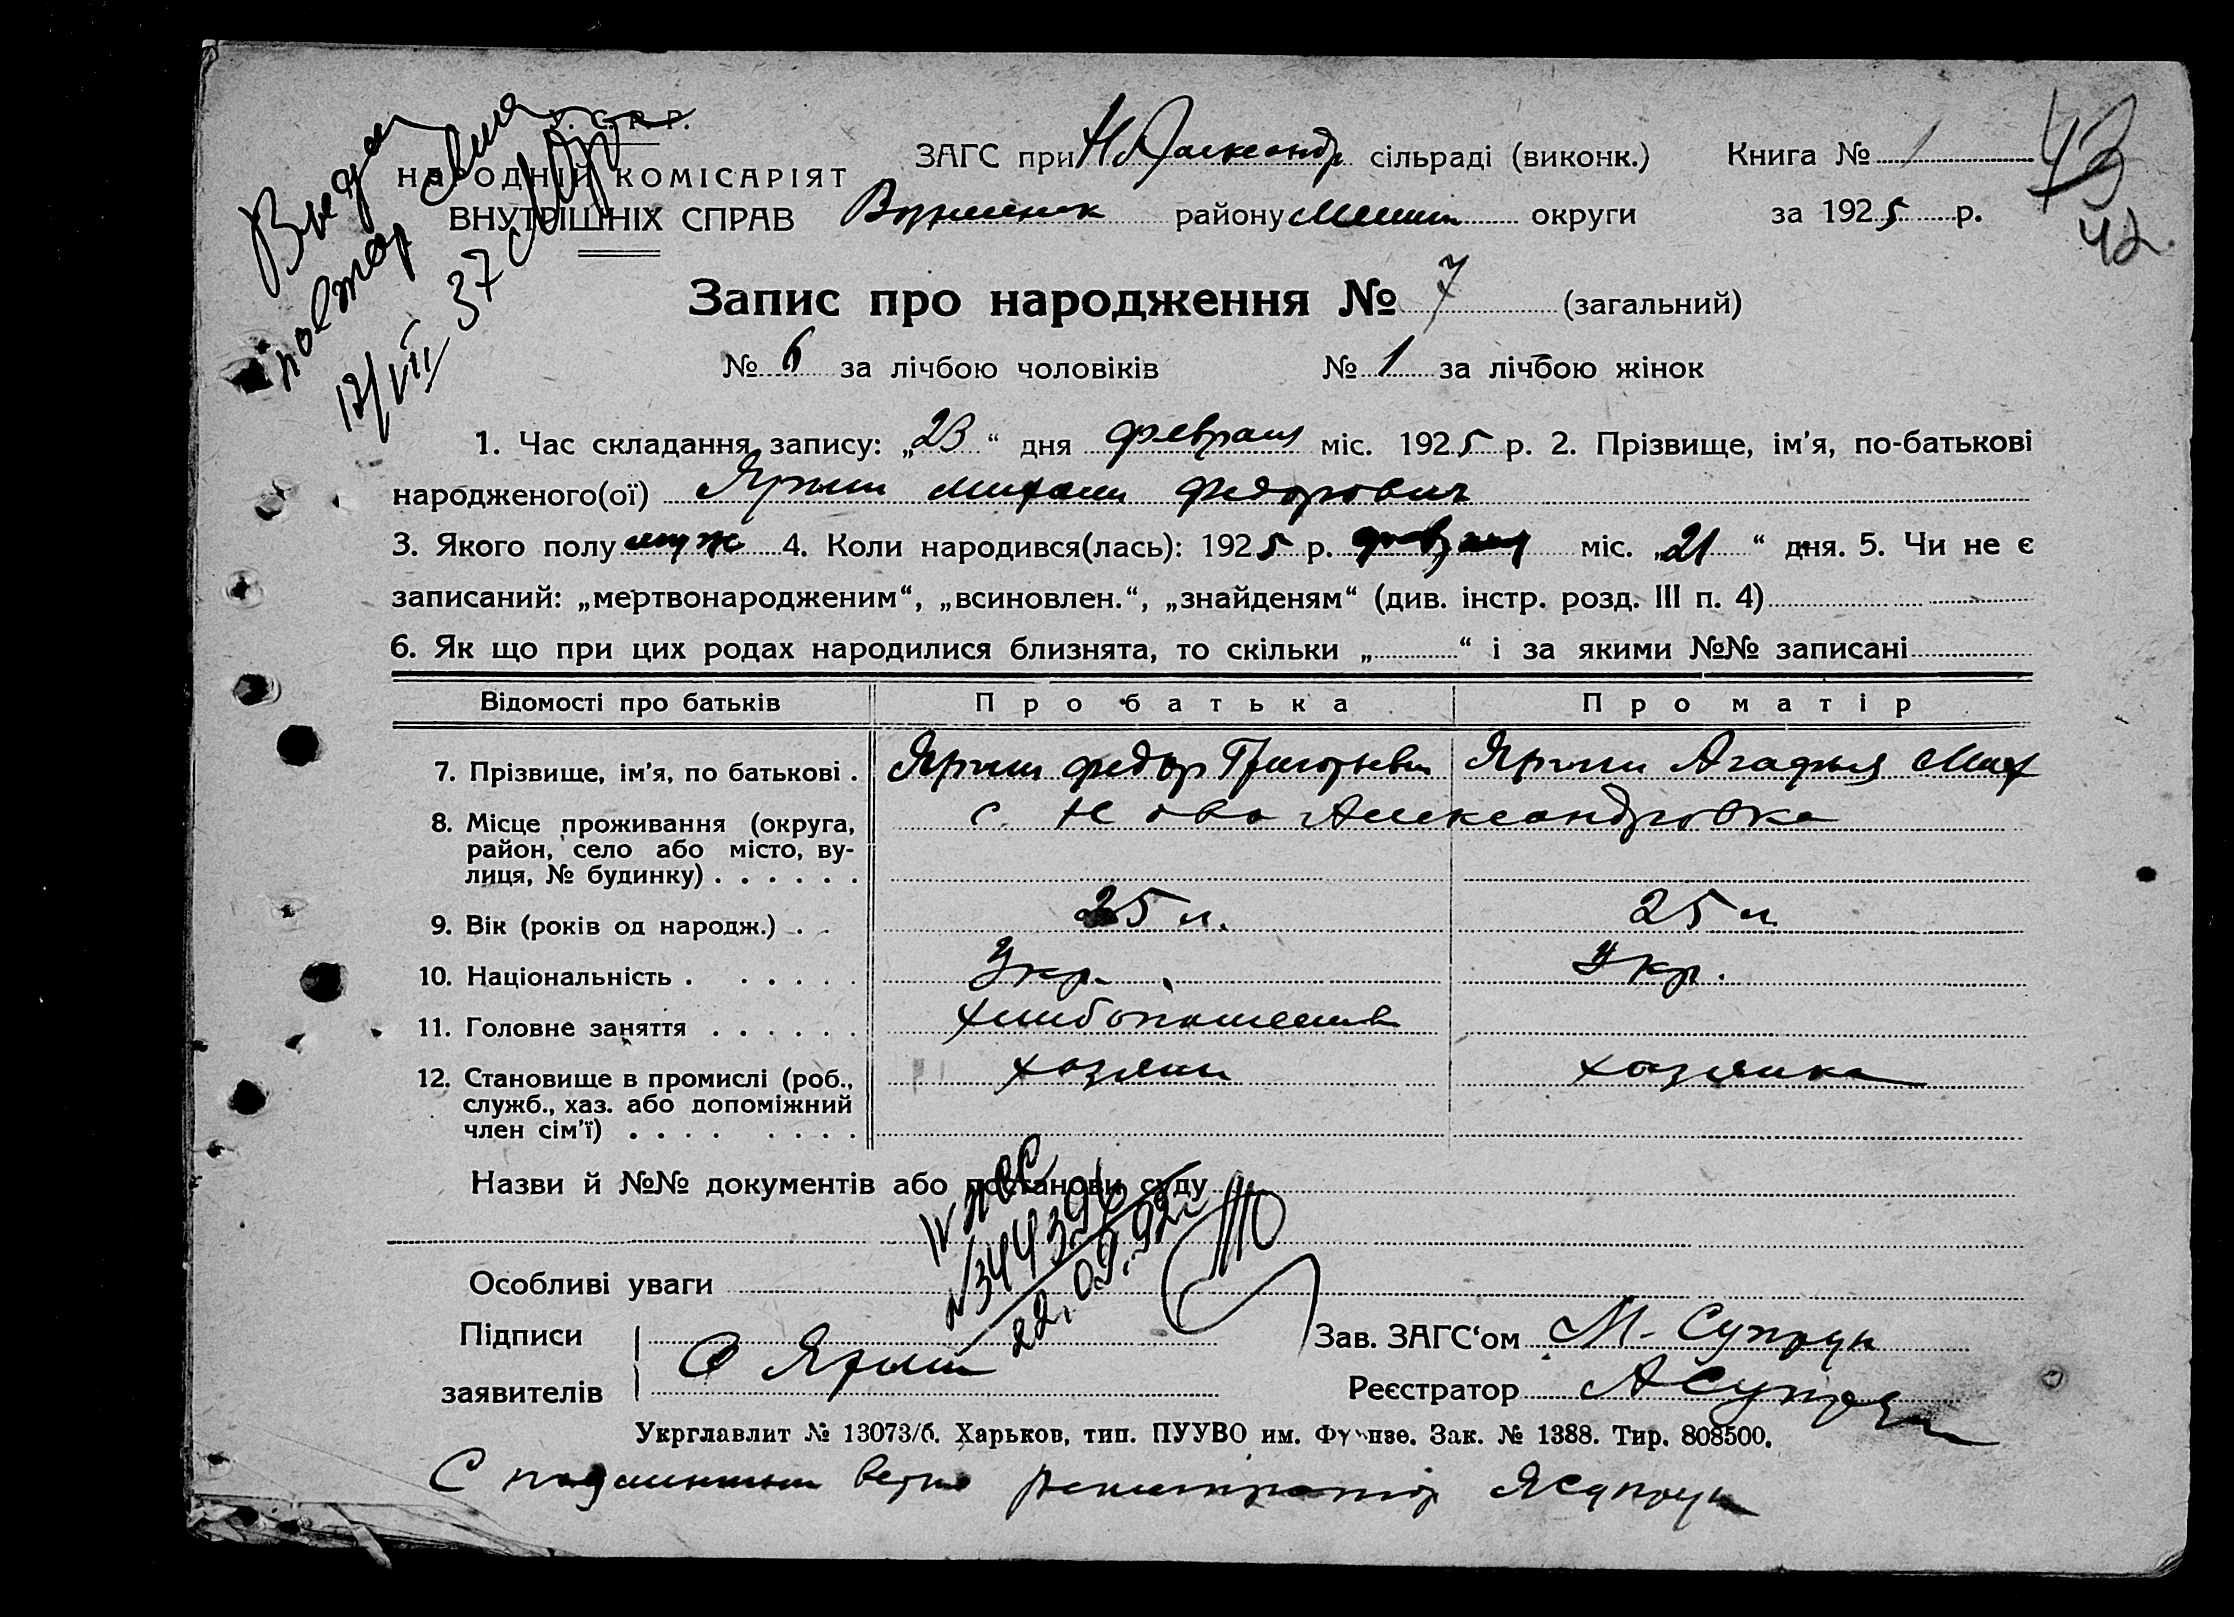 У. С. Р. Р.
НАРОДНІЙ КОМІСАРІЯТ
ВНУТРІШНІХ СПРАВ
ЗАГС при Н Александр сільраді (виконк.)
Книга № 1
43
42
района округи
за 1925 р.
37
Запис про народження № 7 (загальний)
№ 6 за лічбою чоловіків № 1 за лічбою жінок
1. Час складання запису: „23“ дня февраля міс. 1925 р. 2. Прізвище, ім'я, по-батькові
народженого(ої) Ярыш Михаил Федорович
3. Якого полу муж 4. Коли народився(лась): 1925 р. февраля міс. „21“ дня. 5. Чи не є
записаний: „мертвонародженим“, „всиновлен.“, „знайденям“ (див. інстр. розд. III п. 4)
6. Як що при цих родах народилися близнята, то скільки „ “ і за якими №№ записані
Відомості про батьків Про батька Про матір
7. Прізвище, ім'я, по батькові . Ярыш Федор Григорьев Ярыш Агафья Мих
8. Місце проживання (округа, район, село або місто, ву-лиця, № будинку) . . . . . . с. Ново Александровка
9. Вік (років од народж.) . . 25 л. 25 л
10. Національність . . . . . . Укр. Укр.
11. Головне заняття . . . . . .
12. Становище в промислі (роб., служб., хаз. або допоміжний член сім'ї) . . . . . . . . хозяин хозяйка
Назви й №№ документів або постанови суду
22.09.92
Особливі уваги
Підписи
заявителів
Зав. ЗАГС‘ом М. Супрун
Реєстратор А Супрун
Укрглавлит № 13073/б. Харьков, тип. ПУУВО им. Фрунзе. Зак. № 1388. Тир. 808500.
С подлинным верно регистратор АСупрун